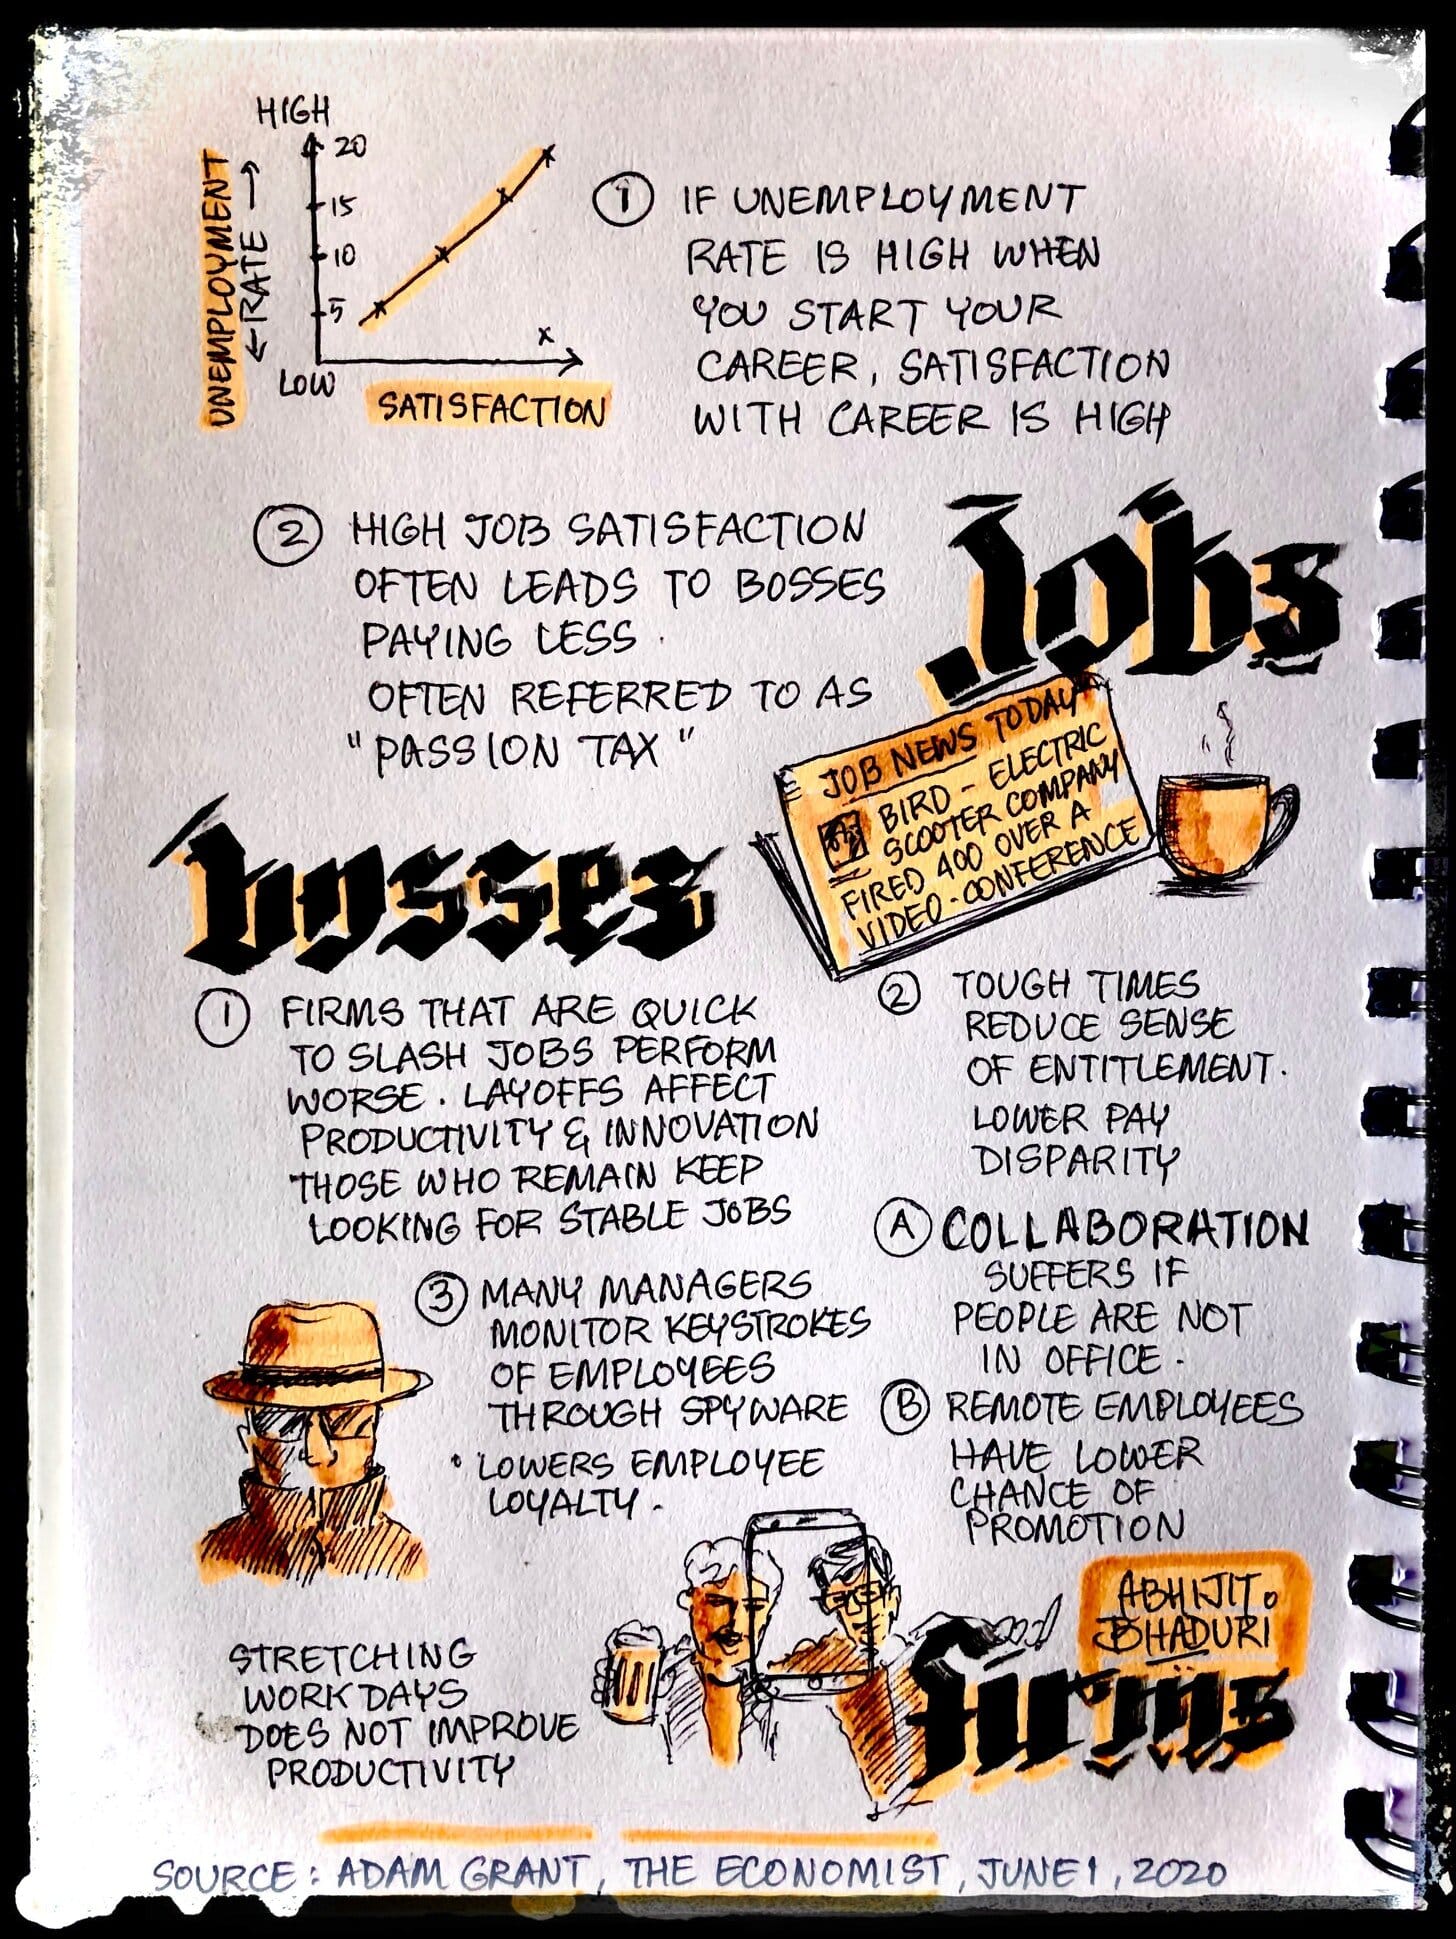 HIGH
20
15
10
5
LOW
UNEMPLOYMENT
← RATE →
x
SATISFACTION
① IF UNEMPLOYMENT
RATE IS HIGH WHEN
YOU START YOUR
CAREER, SATISFACTION
WITH CAREER IS HIGH
② HIGH JOB SATISFACTION
OFTEN LEADS TO BOSSES
PAYING LESS.
OFTEN REFERRED TO AS
"PASSION TAX"
Jobs
JOB NEWS TODAY
BIRD - ELECTRIC
SCOOTER COMPANY
FIRED 400 OVER A
VIDEO-CONFERENCE
bosses
① FIRMS THAT ARE QUICK
TO SLASH JOBS PERFORM
WORSE. LAYOFFS AFFECT
PRODUCTIVITY & INNOVATION
THOSE WHO REMAIN KEEP
LOOKING FOR STABLE JOBS
② TOUGH TIMES
REDUCE SENSE
OF ENTITLEMENT.
LOWER PAY
DISPARITY
Ⓐ COLLABORATION
SUFFERS IF
PEOPLE ARE NOT
IN OFFICE.
Ⓑ REMOTE EMPLOYEES
HAVE LOWER
CHANCE OF
PROMOTION
③ MANY MANAGERS
MONITOR KEYSTROKES
OF EMPLOYEES
THROUGH SPYWARE
• LOWERS EMPLOYEE
LOYALTY.
ABHIJIT
BHADURI
firms
STRETCHING
WORK DAYS
DOES NOT IMPROVE
PRODUCTIVITY
SOURCE: ADAM GRANT, THE ECONOMIST, JUNE 1, 2020